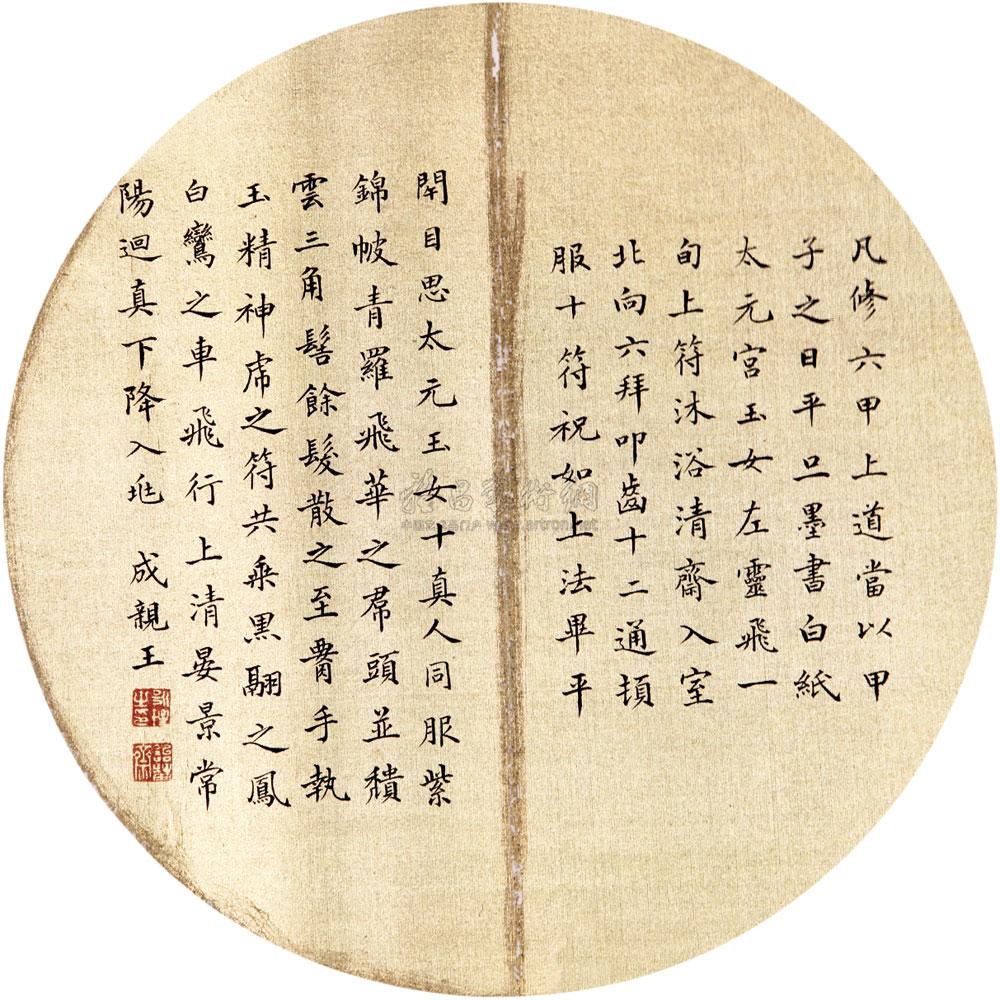 凡修六甲上道當以甲
子之日平旦墨書白紙
太元宮玉女左靈飛一
旬上符沐浴清齋入室
北向六拜叩齒十二通頓
服十符祝如上法畢平
閇目思太元玉女十真人同服紫
錦帔青羅飛華之帬頭並穨
雲三角髻餘髮散之至要手執
玉精神虎之符共乗黒翮之鳳
白鸞之車飛行上清晏景常
陽迴真下降入兆
成親王
永瑆之印
詒晉齋
雅昌藝術網
www.artron.net